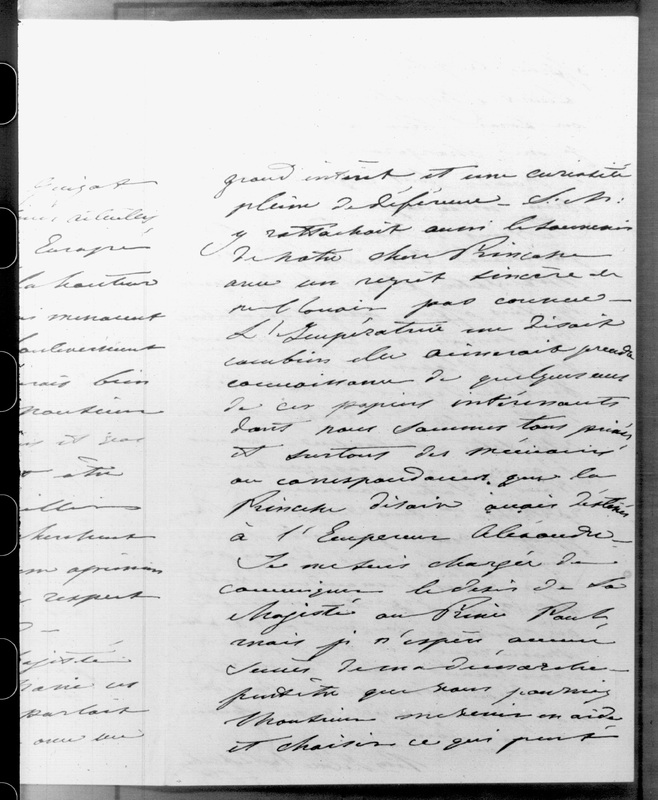 Guizot
Europé
la hauteur
menacent
bouleversement
bien
Monsieur
être
cherchent
opinion
respect
Majesté
Marie et
parlait
avec un
grand intérêt et une curiosité
pleine de déférence – S. M:
y rattachait aussi le souvenir
de notre chère Princesse
avec un regret sincère de
ne l'avoir pas connue –
L'Impératrice me disait
combien elle aimerait prendre
connaissance de quelques uns
de ces papiers intéressants
dont nous sommes tous privés
et surtout des mémoires
ou correspondances, que la
Princesse disait avoir destinés
à l'Empereur Alexandre –
Je me suis chargée de
communiquer le désir de Sa
Majesté au Prince Paul,
mais je n'espère aucun
succès de ma démarche –
peutêtre que vous pourriez
Monsieur me venir en aide
et choisir ce qui peut